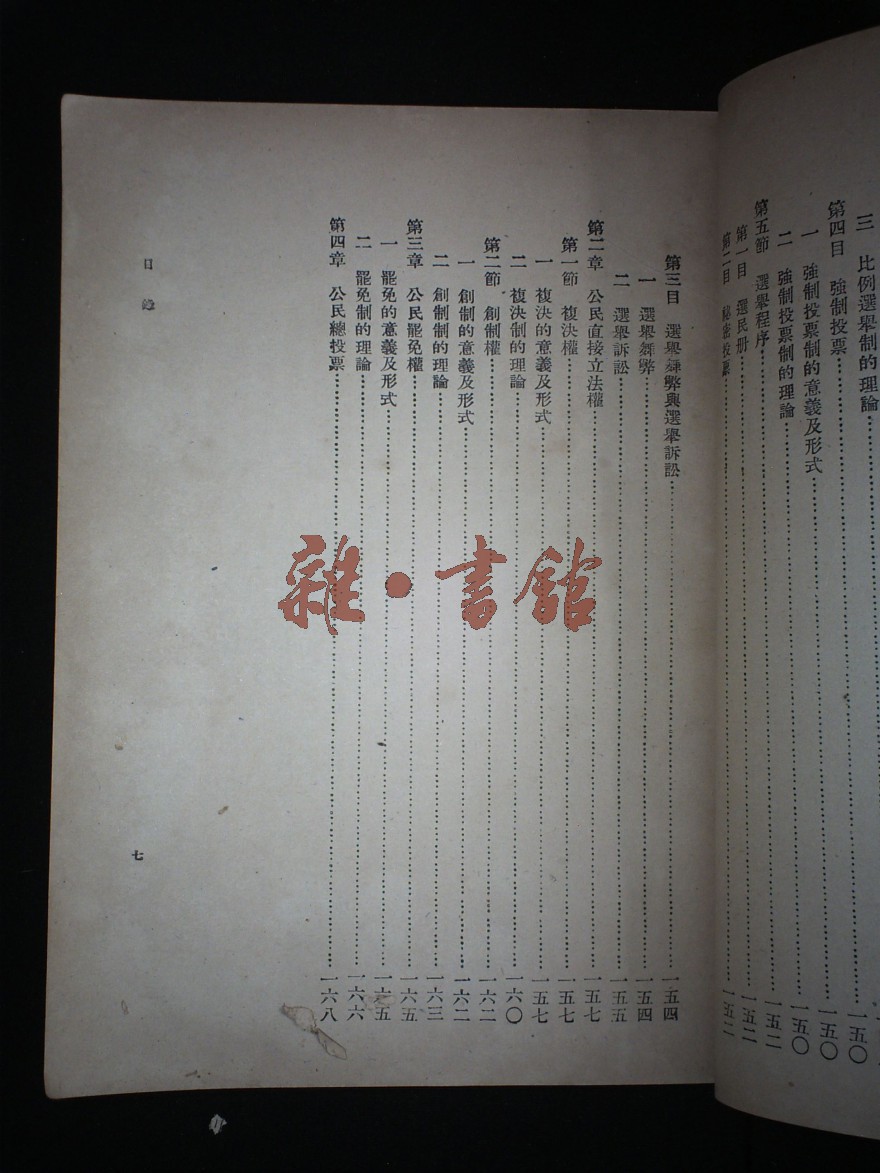 三　比例選舉制的理論……一五〇
第四目　強制投票……一五〇
一　強制投票制的意義及形式……一五〇
二　強制投票制的理論……一五〇
第五節　選舉程序……一五二
第一目　選民册……一五二
第二目　秘密投票……一五二
第三目　選舉舞弊與選舉訴訟……一五四
一　選舉舞弊……一五四
二　選舉訴訟……一五五
第二章　公民直接立法權……一五七
第一節　複決權……一五七
一　複決的意義及形式……一五七
二　複決制的理論……一六〇
第二節　創制權……一六二
一　創制的意義及形式……一六二
二　創制制的理論……一六三
第三章　公民罷免權……一六五
一　罷免的意義及形式……一六五
二　罷免制的理論……一六六
第四章　公民總投票……一六八
目錄
七
雜·書館